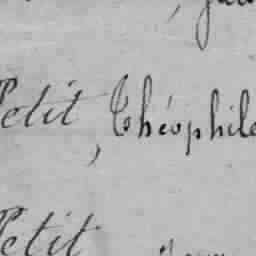 Petit, Théophile
Petit